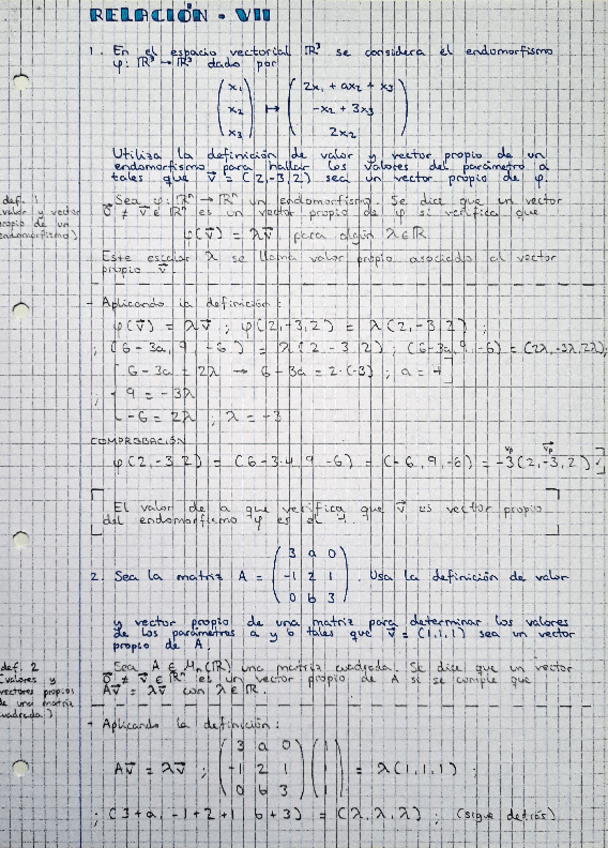 RELACIÓN - VII
1. En el espacio vectorial ℝ³ se considera el endomorfismo
φ: ℝ³ → ℝ³ dado por
(x₁ x₂ x₃) ↦ (2x₁ + ax₂ + x₃
-x₂ + 3x₃
2x₂)
Utiliza la definición de valor y vector propio de un
endomorfismo para hallar los valores del parámetro a
tales que v⃗ = (2,-3,2) sea un vector propio de φ.
def. 1
(valor y vector
propio de un
endomorfismo)
Sea φ: ℝⁿ → ℝⁿ un endomorfismo. Se dice que un vector
0⃗ ≠ v⃗ ∈ ℝⁿ es un vector propio de φ si verifica que
φ(v⃗) = λv⃗ para algún λ ∈ ℝ
Este escalar λ se llama valor propio asociado al vector
propio v⃗.
- Aplicando la definición:
φ(v⃗) = λv⃗ ; φ(2,-3,2) = λ(2,-3,2) ;
; (6-3a, 9, -6) = λ(2,-3,2) ; (6-3a, 9, -6) = (2λ, -3λ, 2λ);
6 - 3a = 2λ → 6 - 3a = 2·(-3) ; a = 4
; 9 = -3λ
-6 = 2λ ; λ = -3
COMPROBACIÓN
φ(2,-3,2) = (6-3·4, 9, -6) = (-6, 9, -6) = -3(2,-3,2)
El valor de a que verifica que v⃗ es vector propio
del endomorfismo φ es el 4.
2. Sea la matriz A = (3 a 0
-1 2 1
0 b 3). Usa la definición de valor
y vector propio de una matriz para determinar los valores
de los parámetros a y b tales que v⃗ = (1,1,1) sea un vector
propio de A.
def. 2
(valores y
vectores propios
de una matriz
cuadrada)
Sea A ∈ Mₙ(ℝ) una matriz cuadrada. Se dice que un vector
0⃗ ≠ v⃗ ∈ ℝⁿ es un vector propio de A si se cumple que
Av⃗ = λv⃗ con λ ∈ ℝ.
- Aplicando la definición:
Av⃗ = λv⃗ ; (3 a 0
-1 2 1
0 b 3) (1 1 1) = λ(1,1,1) ;
; (3+a, -1+2+1, b+3) = (λ, λ, λ) ; (sigue detrás)